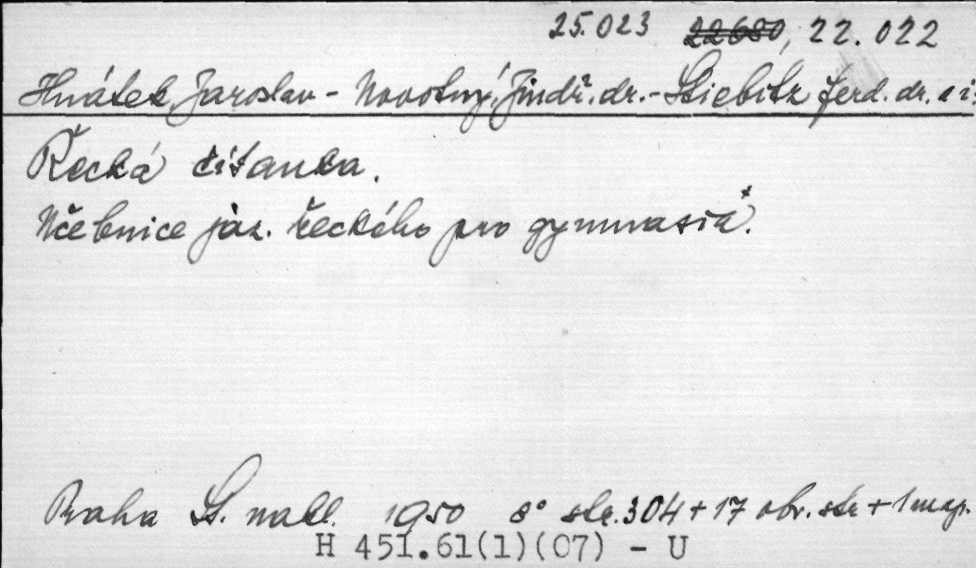 25.023 22680, 22.022
Hnátek, Jaroslav - Novotný, Jindř. dr. - Stiebitz Ferd. dr.
Řecká čítanka.
Učebnice jaz. řeckého pro gymnasia.
Praha St. nakl. 1950 8° str. 304 + 17 obr. str + 1 map.
H 451.61(1)(07) - U